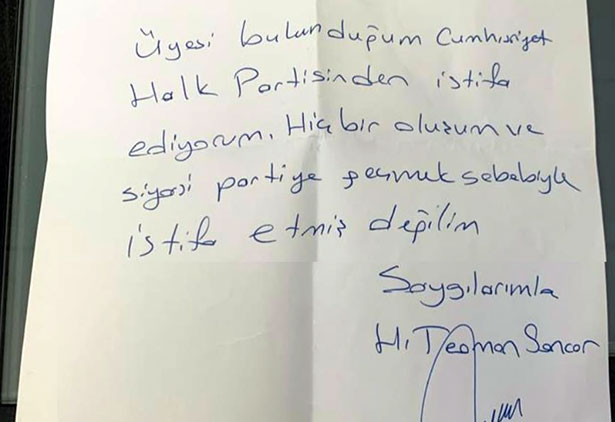 Üyesi bulunduğum Cumhuriyet
Halk Partisinden istifa
ediyorum. Hiç bir oluşum ve
siyasi partiye geçmek sebebiyle
istifa etmiş değilim
Saygılarımla
H. Teoman Sancar